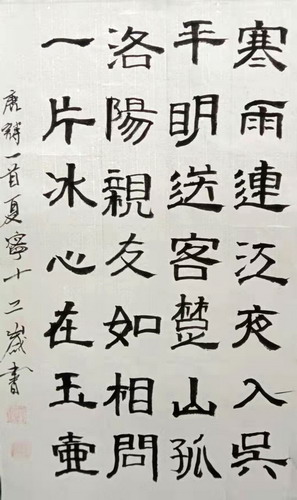 寒雨連江夜入吳
平明送客楚山孤
洛陽親友如相問
一片冰心在玉壺
唐詩一首夏寧十二歲書